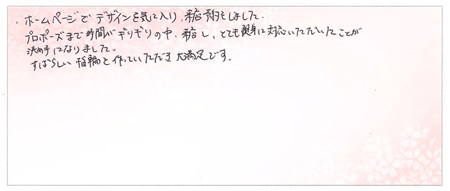 ・ホームページでデザインを気に入り、来店予約をしました。
プロポーズまで時間がギリギリの中、来店し、とても親身に対応いただいたことが
決め手になりました。
すばらしい指輪を作っていただき大満足です。